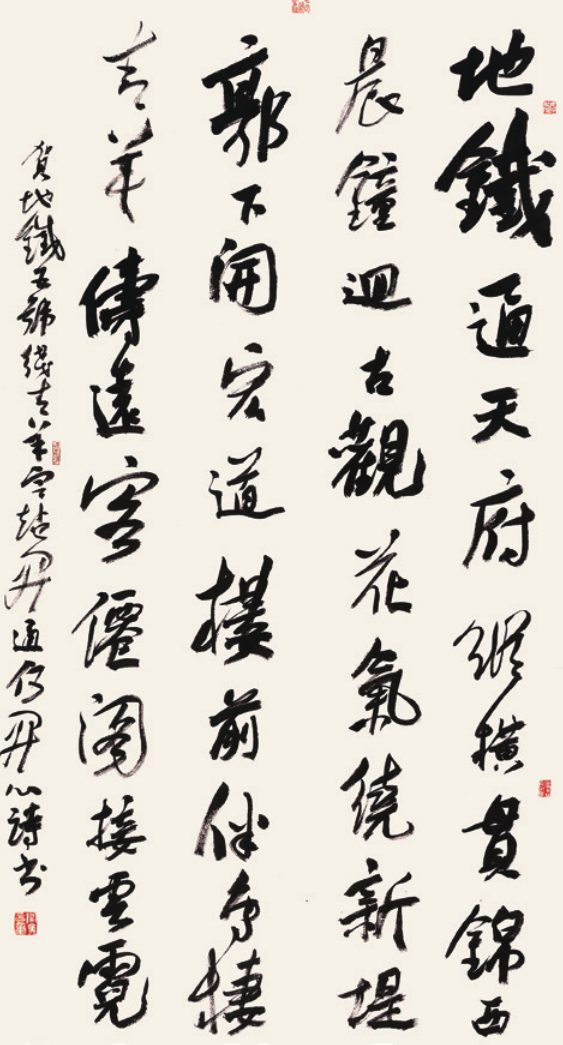 地鐵通天府縱橫貫錦西
晨鐘迴古觀花氣繞新堤
郭下開宏道樓前伴鳥棲
青羊傳遠客僊閣接雲霓
賀地鐵五號綫青羊宮站開通開心詩書